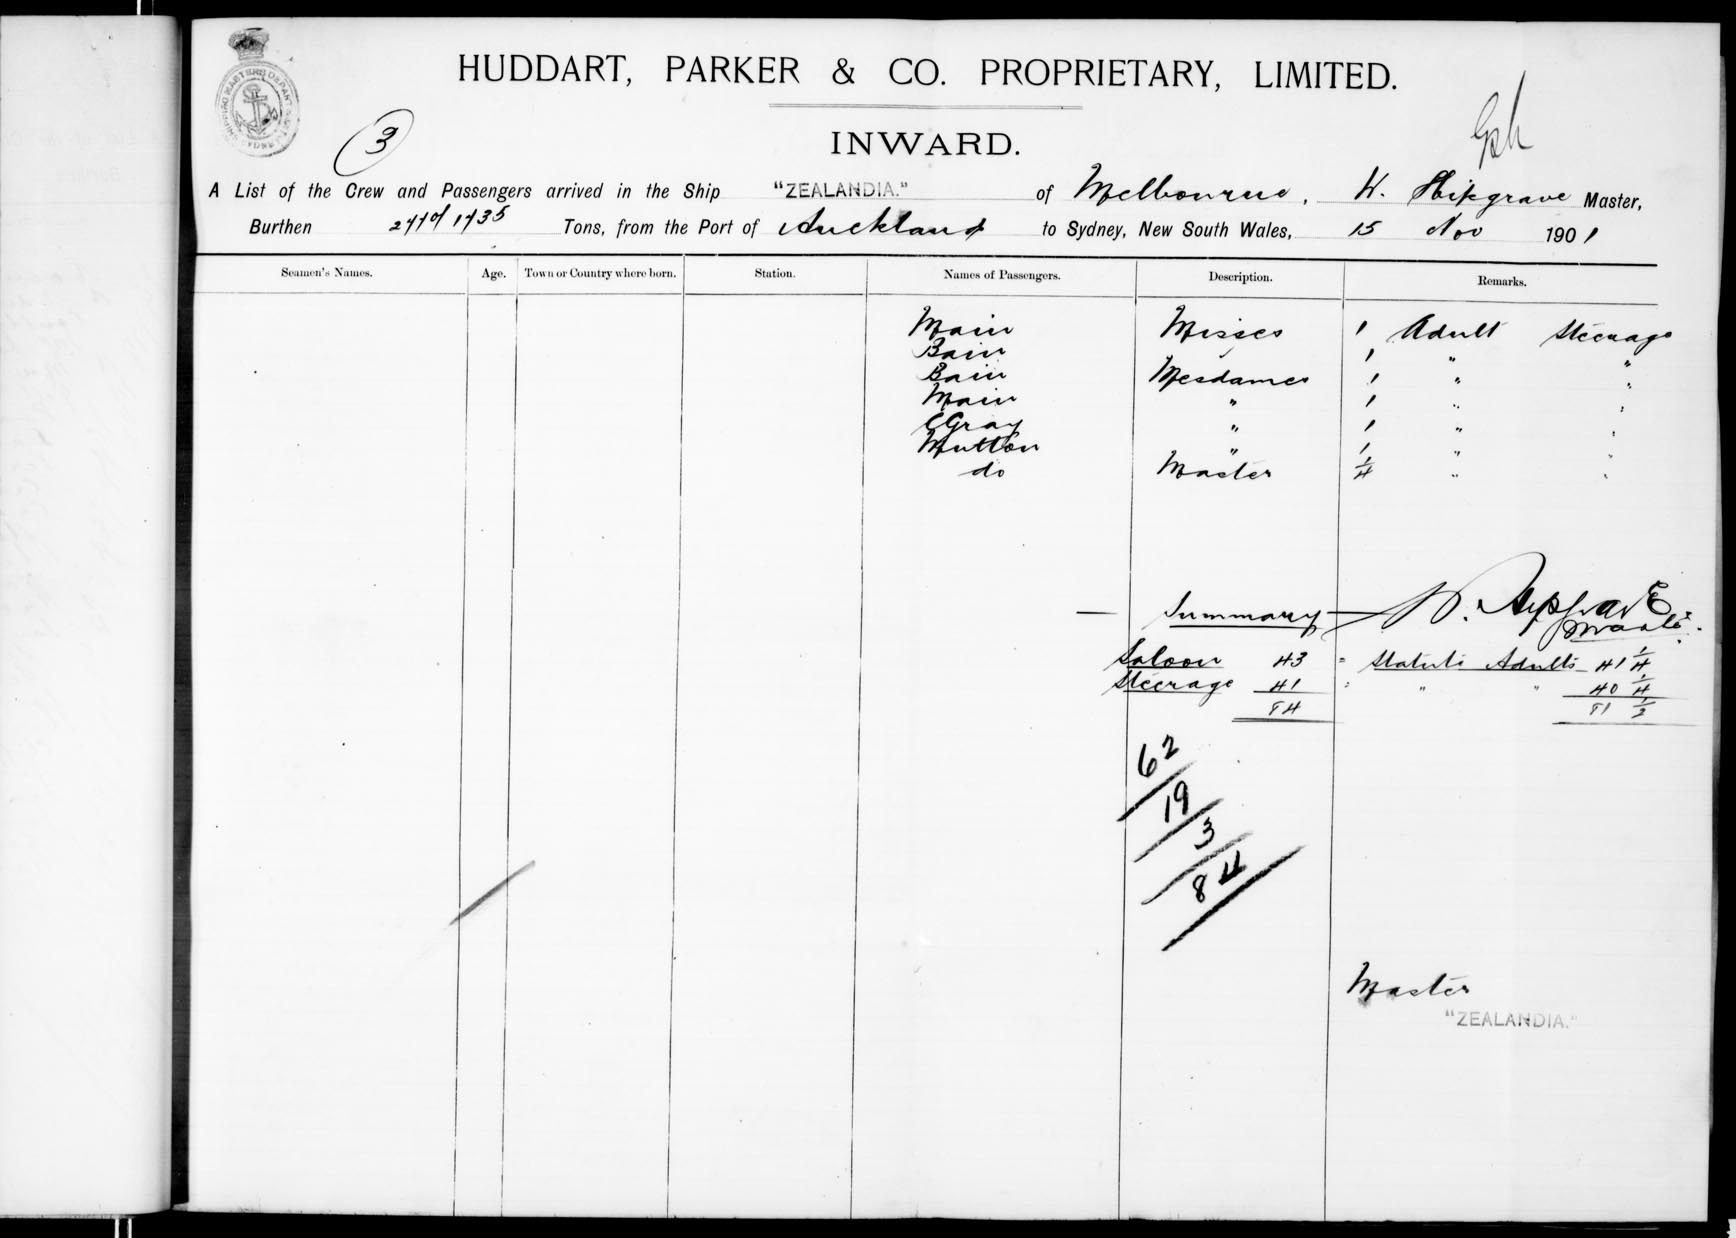 HUDDART, PARKER & CO. PROPRIETARY, LIMITED.
3
INWARD.
A List of the Crew and Passengers arrived in the Ship "ZEALANDIA." of Melbourne, W. Hipgrave Master,
Burthen Tons, from the Port of Auckland to Sydney, New South Wales, 15 Nov 1901
Seamen's Names. Age. Town or Country where born. Station. Names of Passengers. Description. Remarks.
Main Misses 1 Adult Steerage
Bain " 1 " "
Bain Mesdames 1 " "
Main " 1 " "
Gray " 1 " "
Mutton " 1 " "
do Master 1/4 " "
Summary
Master
Saloon 43 = Statute Adults 41 1/4
Steerage 41 = " " 40 1/4
84 81 1/2
62
19
3
84
Master
"ZEALANDIA."